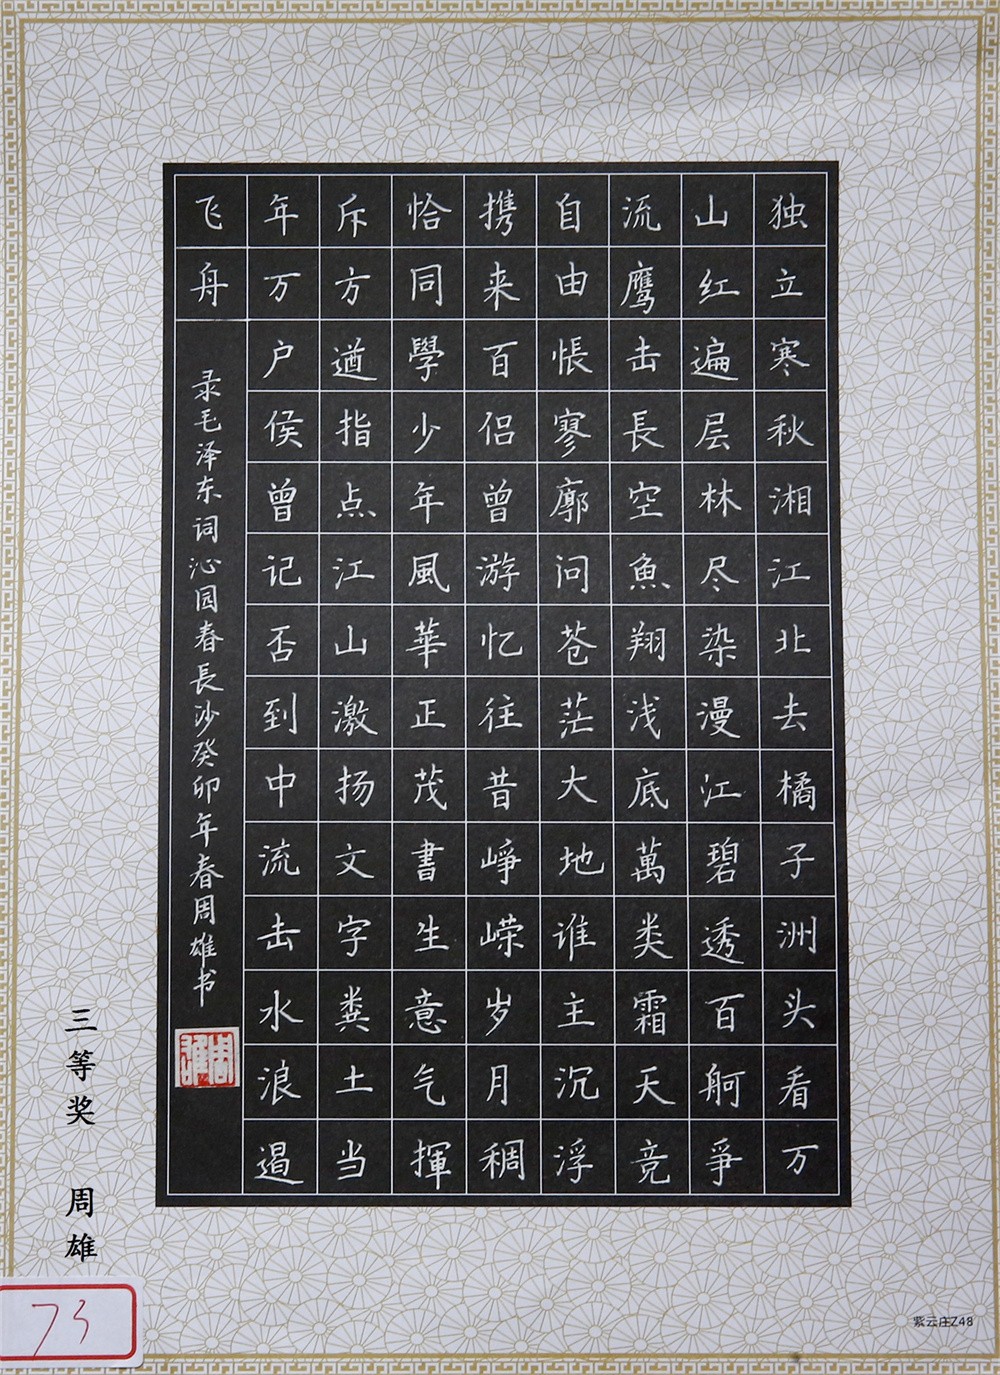 独立寒秋湘江北去橘子洲头看万
山红遍层林尽染漫江碧透百舸爭
流鹰击長空魚翔浅底萬类霜天竞
自由悵寥廓问苍茫大地谁主沉浮
携来百侣曾游忆往昔峥嵘岁月稠
恰同學少年風華正茂書生意气揮
斥方遒指点江山激扬文字粪土当
年万户侯曾记否到中流击水浪遏
飞舟
录毛泽东词沁园春長沙癸卯年春周雄书
周雄
三等奖 周雄
73
紫云庄Z48